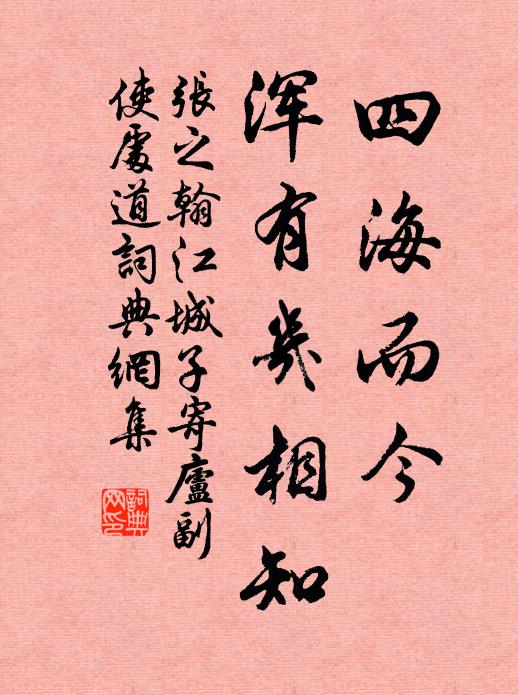 四海而今
渾有幾相知
張之翰江城子寄廬副
使處道詞典網集
詞典
网印